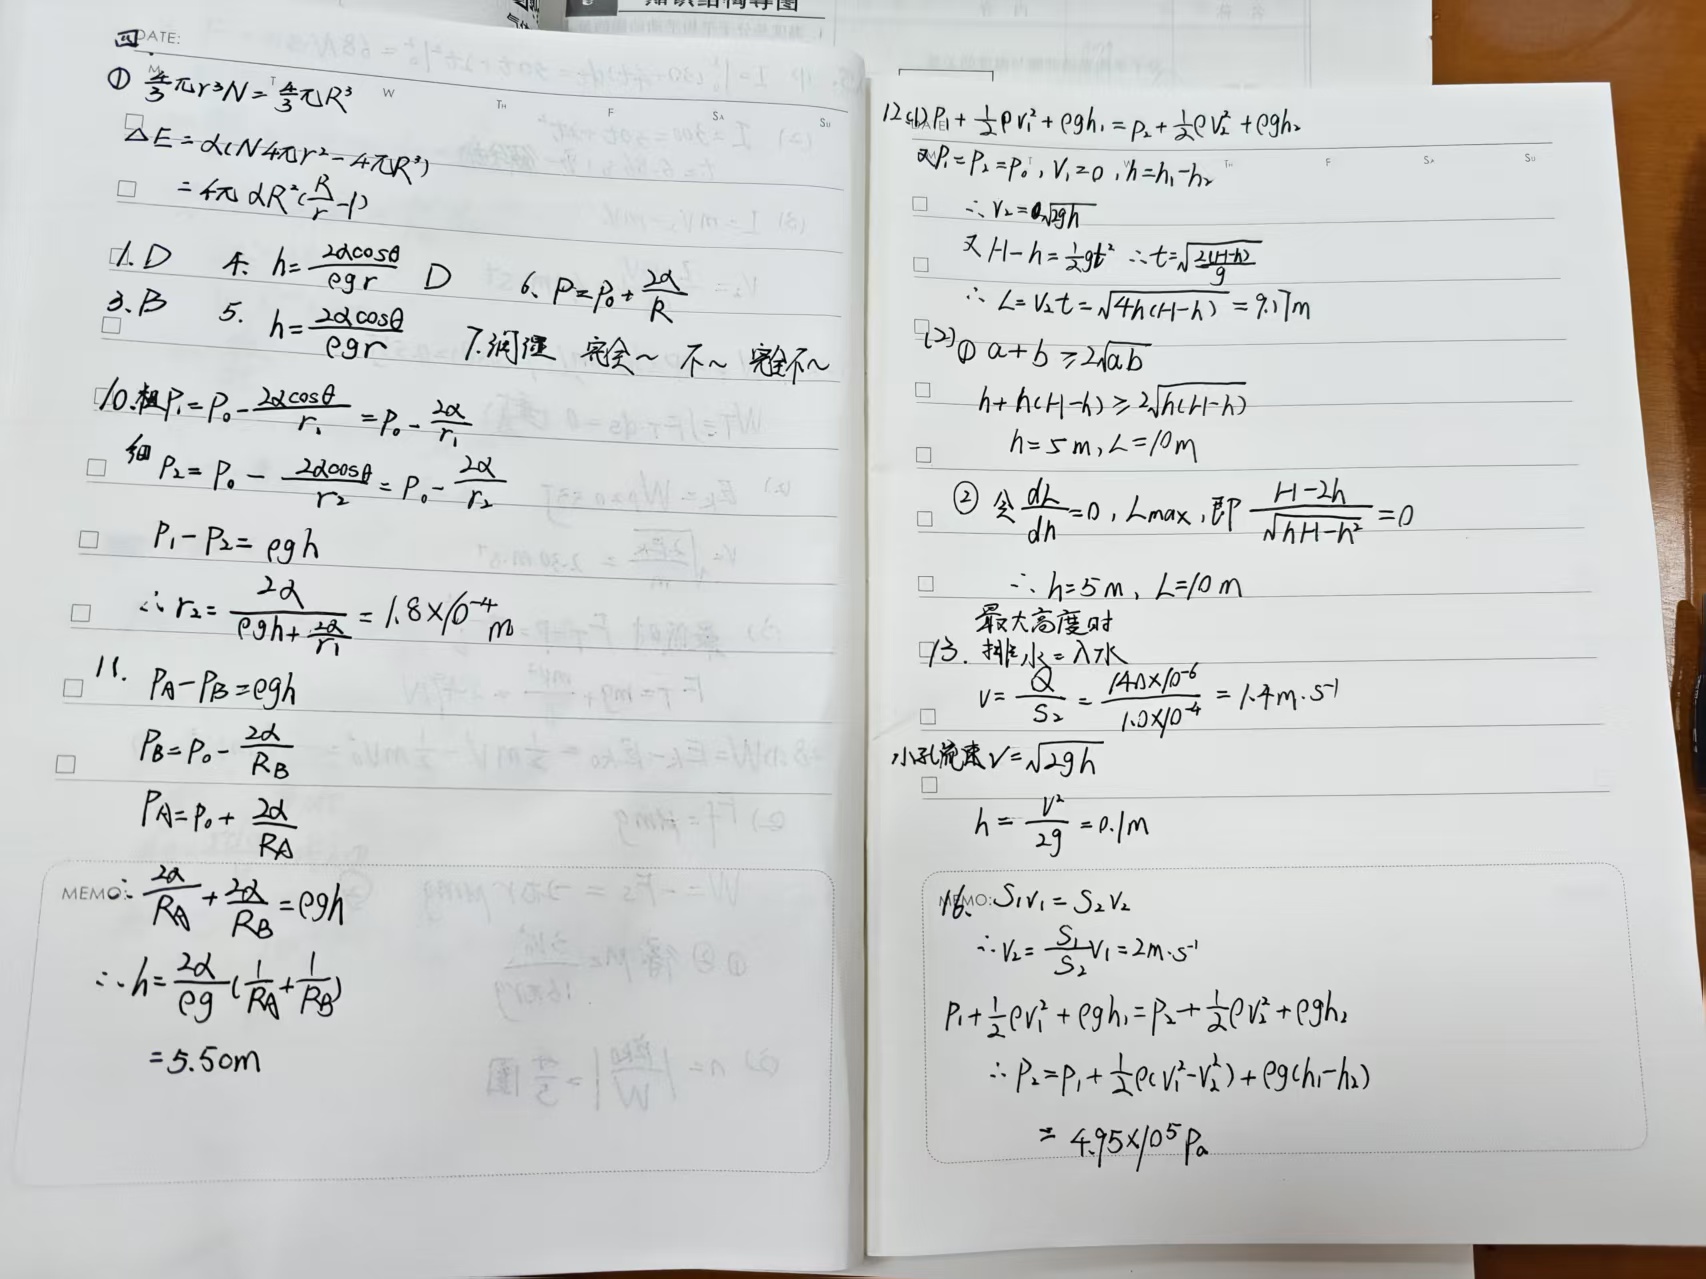 知识结构导图
名称
内容
四
DATE:
M T W TH F SA SU
① 4/3πr³N=4/3πR³
ΔE=α(N4πr²-4πR³)
=4παR²(R/r-1)
1. D
4. h=2αcosθ/ρgr D
6. P=P₀+2α/R
3. B
5. h=2αcosθ/ρgr
7. 润湿 完全~ 不~ 完全不~
10. 粗P₁=P₀-2αcosθ/r₁=P₀-2α/r₁
细 P₂=P₀-2αcosθ/r₂=P₀-2α/r₂
P₁-P₂=ρgh
∴r₂=2α/(ρgh+2α/r₁)=1.8×10⁻⁴m
11. PA-PB=ρgh
PB=P₀-2α/RB
PA=P₀+2α/RA
MEMO:
∴2α/RA+2α/RB=ρgh
∴h=2α/ρg(1/RA+1/RB)
=5.5cm
12.(1)P₁+½ρv₁²+ρgh₁=P₂+½ρv₂²+ρgh₂
DATE:
M T W TH F SA SU
又P₁=P₂=P₀,V₁=0,h=h₁-h₂
∴V₂=√2gh
又H-h=½gt² ∴t=√(2(H-h)/g)
∴L=V₂t=√4h(H-h)=9.17m
(2)① a+b≥2√ab
h+h(H-h)≥2√h(H-h)
h=5m,L=10m
② 令dL/dh=0,Lmax,即(H-2h)/√(hH-h²)=0
∴h=5m,L=10m
最大高度时
13. 排水=入水
V=Q/S₂=140×10⁻⁶/1.0×10⁻⁴=1.4m·s⁻¹
小孔流速V=√2gh
h=V²/2g=0.1m
MEMO:
16. S₁v₁=S₂v₂
∴v₂=S₁/S₂v₁=2m·s⁻¹
P₁+½ρv₁²+ρgh₁=P₂+½ρv₂²+ρgh₂
∴P₂=P₁+½ρ(v₁²-v₂²)+ρg(h₁-h₂)
=4.95×10⁵Pa